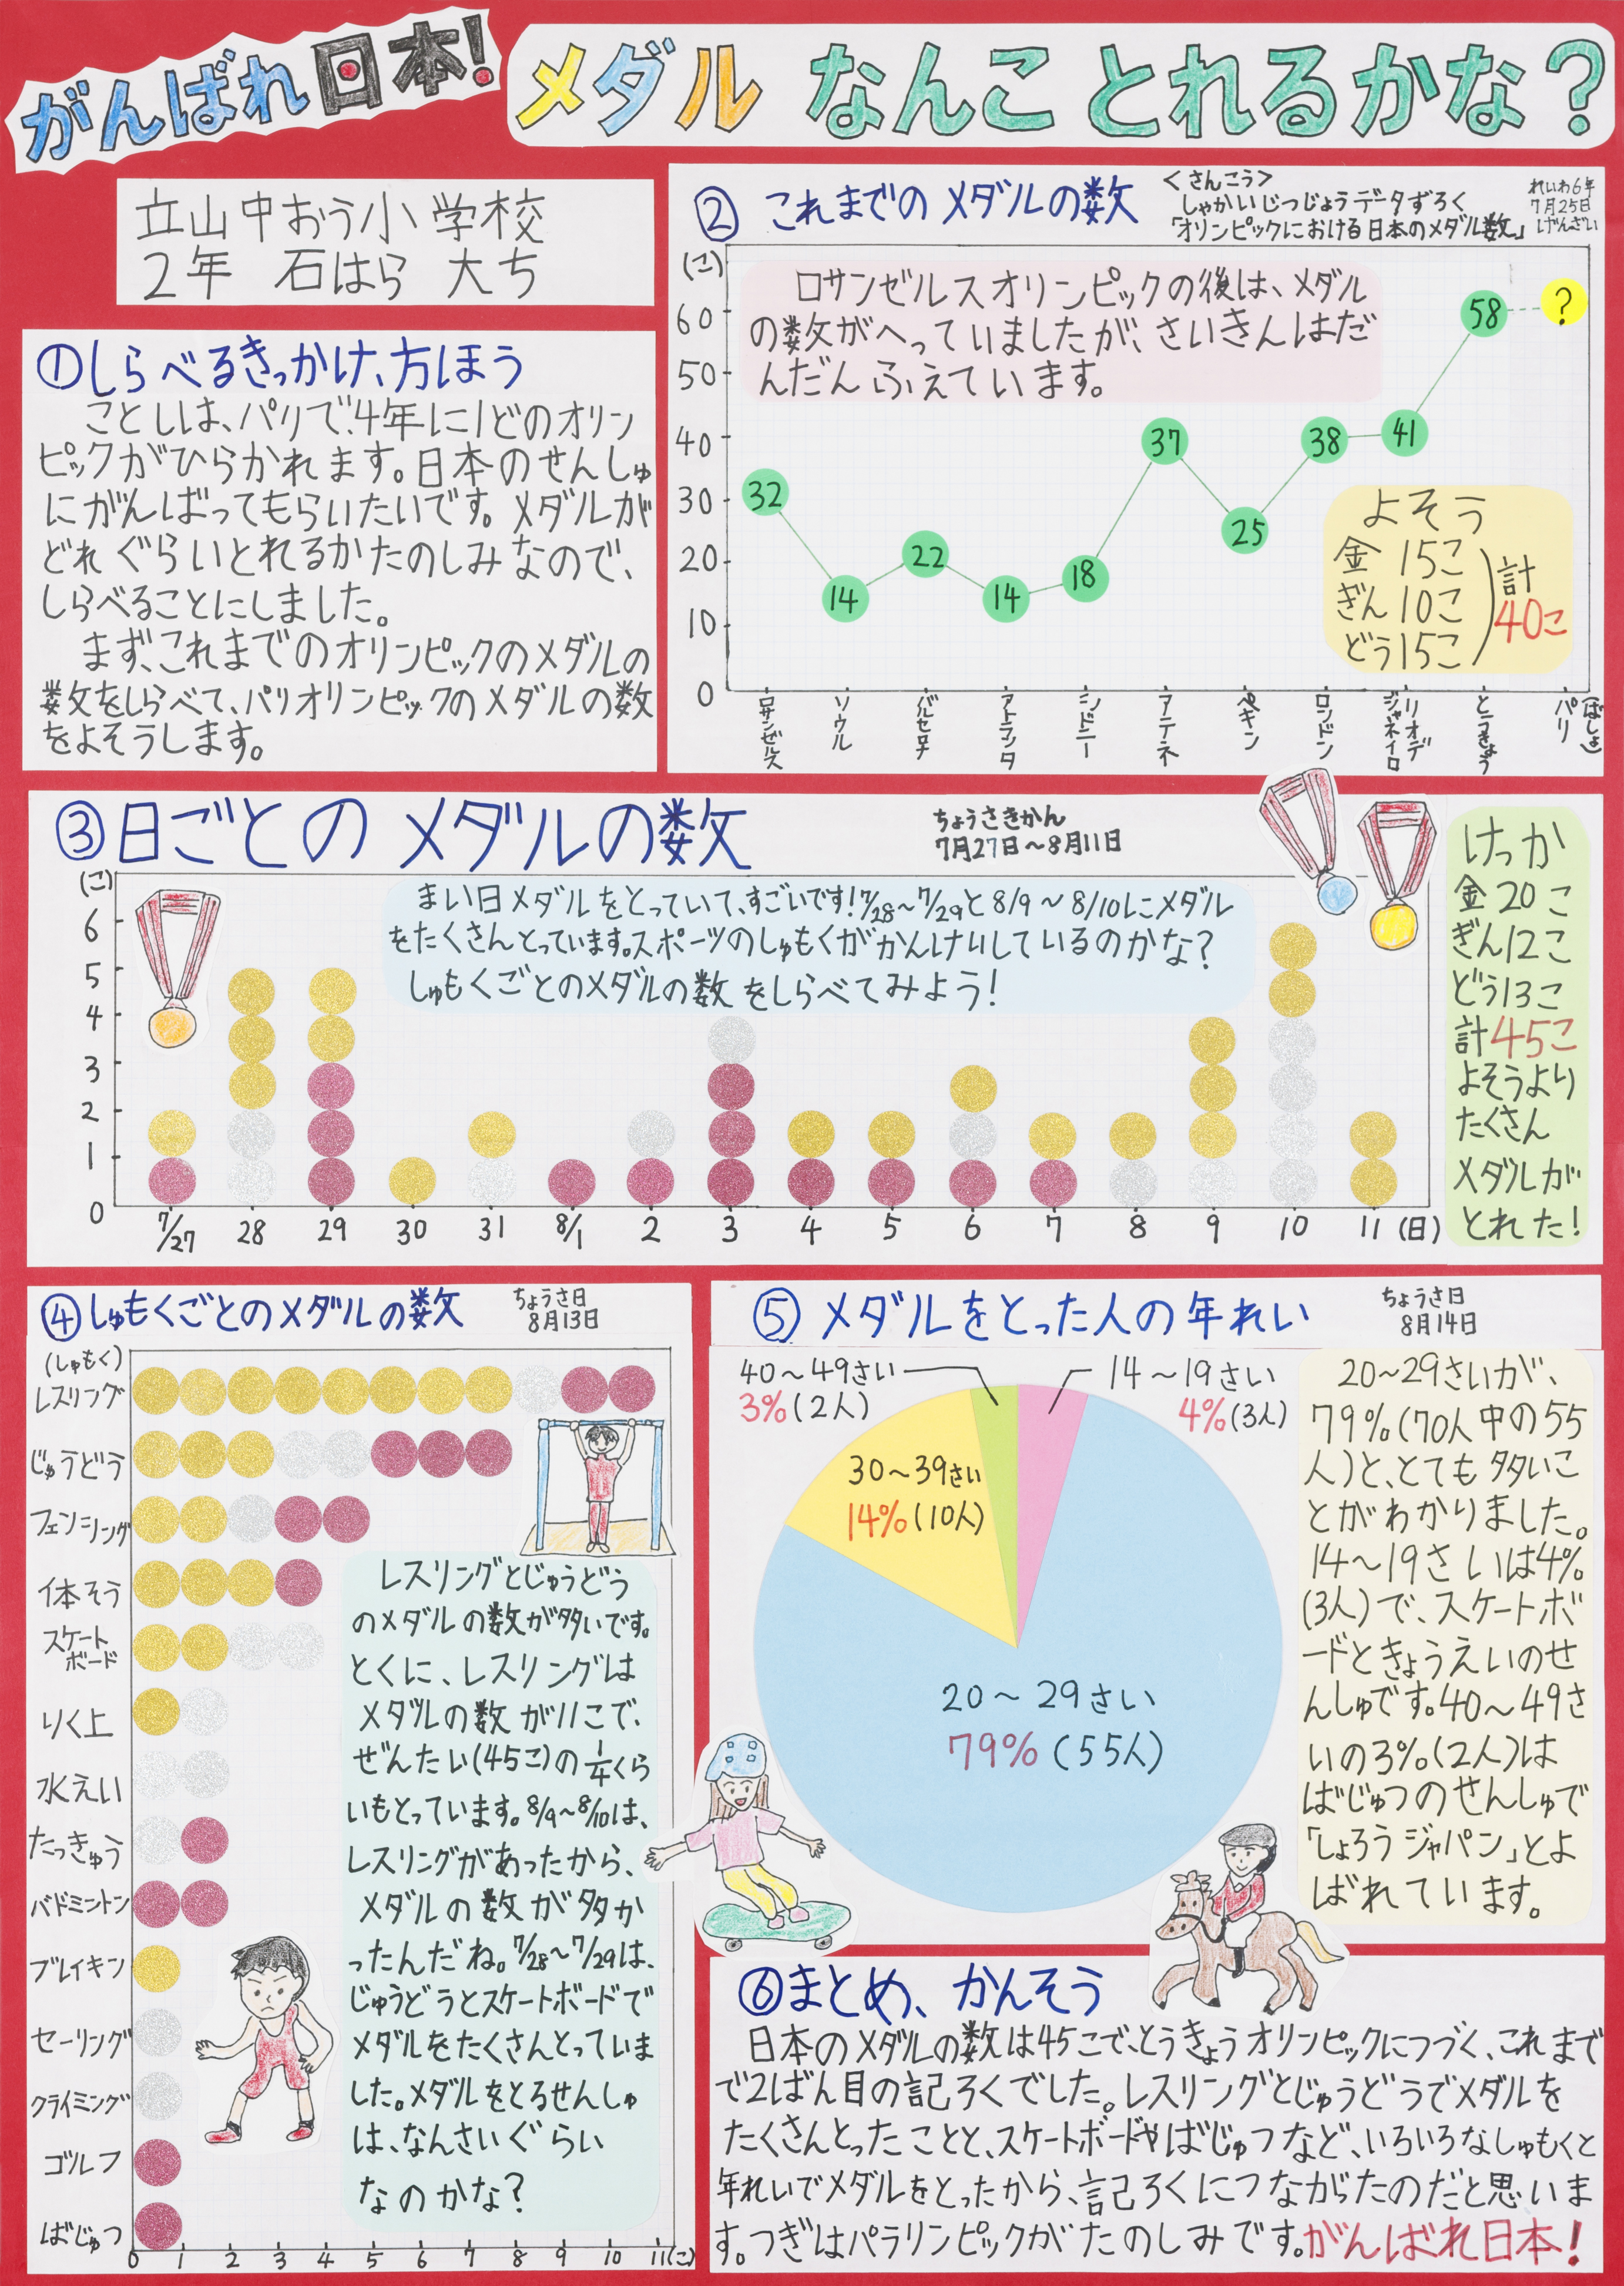 がんばれ日本!
メダル なんこ とれるかな?
立山中おう小学校
2年 石はら 大ち
①しらべるきっかけ、方ほう
ことしは、パリで、4年に1どのオリン
ピックがひらかれます。日本のせんしゅ
にがんばってもらいたいです。メダルが
どれぐらいとれるかたのしみなので、
しらべることにしました。
まず、これまでのオリンピックのメダルの
数をしらべて、パリオリンピックのメダルの数
をよそうします。
②これまでのメダルの数
<さんこう>
しゃかいじつじょうデータずろく
「オリンピックにおける日本のメダル数」
れいわ6年
7月25日
げんざい
(こ)
ロサンゼルスオリンピックの後は、メダル
の数がへっていましたが、さいきんはだ
んだんふえています。
60
50
40
30
20
10
0
32
14
22
14
18
37
25
38
41
58
?
よそう
金 15こ
ぎん 10こ
どう 15こ
計
40こ
ロサンゼルス
ソウル
バルセロナ
アトランタ
シドニー
アテネ
ペキン
ロンドン
リオデ
ジャネイロ
とうきょう
パリ
(ばしょ)
③日ごとのメダルの数
ちょうさきかん
7月27日~8月11日
(こ)
まい日メダルをとっていて、すごいです!7/28~7/29と8/9~8/10にメダル
をたくさんとっています。スポーツのしゅもくがかんけいしているのかな?
しゅもくごとのメダルの数をしらべてみよう!
6
5
4
3
2
1
0
7/27 28 29 30 31 8/1 2 3 4 5 6 7 8 9 10 11 (日)
けっか
金20こ
ぎん12こ
どう13こ
計45こ
よそうより
たくさん
メダルが
とれた!
④しゅもくごとのメダルの数
ちょうさ日
8月13日
(しゅもく)
レスリング
じゅうどう
フェンシング
体そう
スケート
ボード
りく上
水えい
たっきゅう
バドミントン
ブレイキン
セーリング
クライミング
ゴルフ
ばじゅつ
0 1 2 3 4 5 6 7 8 9 10 11(こ)
レスリングとじゅうどう
のメダルの数が多いです。
とくに、レスリングは
メダルの数が11こで、
ぜんたい(45こ)の1/4くら
いもとっています。8/9~8/10は、
レスリングがあったから、
メダルの数が多か
ったんだね。7/28~7/29は、
じゅうどうとスケートボードで
メダルをたくさんとっていま
した。メダルをとるせんしゅ
は、なんさいぐらい
なのかな?
⑤メダルをとった人の年れい
ちょうさ日
8月14日
40~49さい
3%(2人)
14~19さい
4%(3人)
30~39さい
14%(10人)
20~29さい
79%(55人)
20~29さいが、
79%(70人中の55
人)と、とても多いこ
とがわかりました。
14~19さいは4%
(3人)で、スケートボ
ードときょうえいのせ
んしゅです。40~49さ
いの3%(2人)は
ばじゅつのせんしゅで
「しょろうジャパン」とよ
ばれています。
⑥まとめ、かんそう
日本のメダルの数は45こで、とうきょうオリンピックにつづく、これまで
で2ばん目の記ろくでした。レスリングとじゅうどうでメダルを
たくさんとったことと、スケートボードやばじゅつなど、いろいろなしゅもくと
年れいでメダルをとったから、記ろくにつながったのだと思いま
す。つぎはパラリンピックがたのしみです。がんばれ日本!